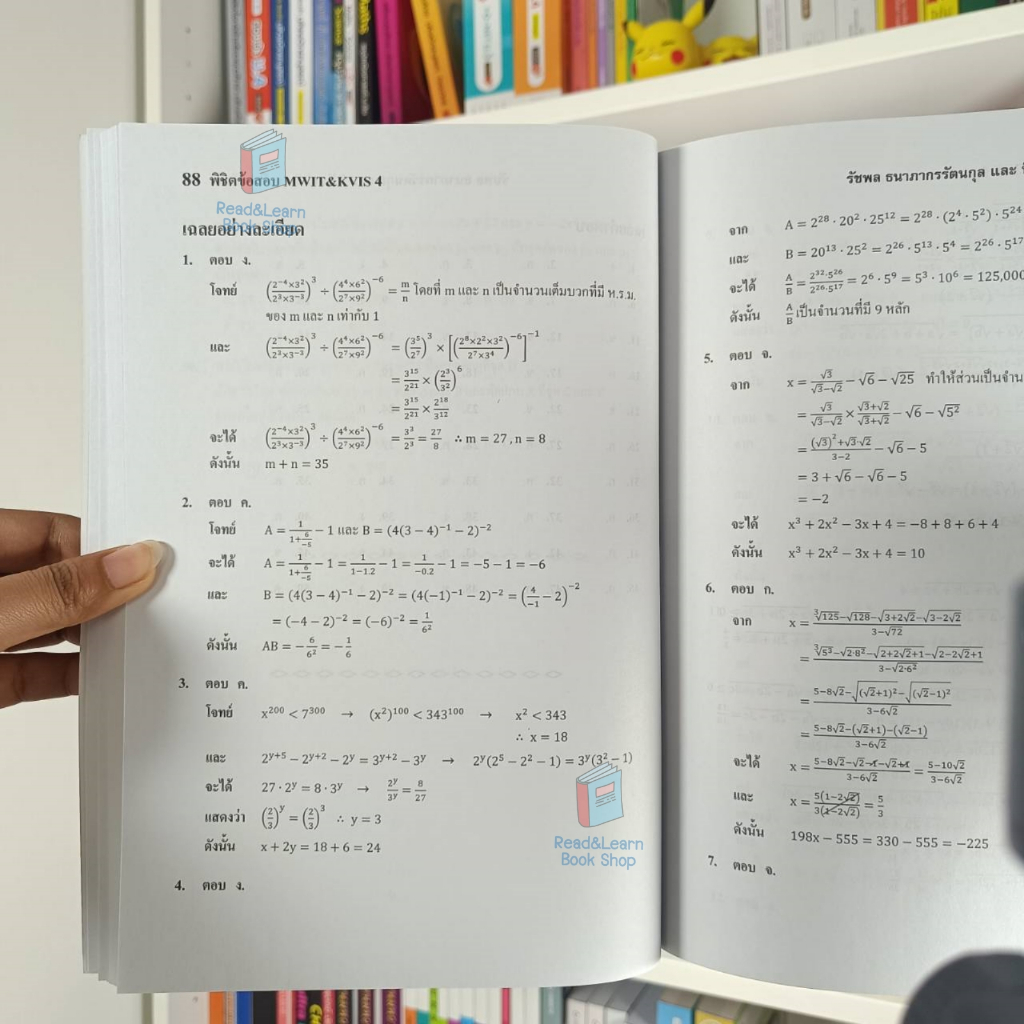 88 พิชิตข้อสอบ MWIT&KVIS 4
Read&Learn
Book Shop
เฉลยอย่างละเอียด
1. ตอบ ง.
โจทย์ ((2⁻⁴×3²)/(2³×3⁻³))³ ÷ ((4⁴×6²)/(2⁷×9²))⁻⁶ = m/n โดยที่ m และ n เป็นจำนวนเต็มบวกที่มี ห.ร.ม.
ของ m และ n เท่ากับ 1
และ ((2⁻⁴×3²)/(2³×3⁻³))³ ÷ ((4⁴×6²)/(2⁷×9²))⁻⁶ = (3⁵/2⁷)³ × [((2⁸×2²×3²)/(2⁷×3⁴))⁻⁶]⁻¹
= 3¹⁵/2²¹ × (2³/3²)⁶
= 3¹⁵/2²¹ × 2¹⁸/3¹²
จะได้ ((2⁻⁴×3²)/(2³×3⁻³))³ ÷ ((4⁴×6²)/(2⁷×9²))⁻⁶ = 3³/2³ = 27/8 ∴ m = 27 , n = 8
ดังนั้น m + n = 35
2. ตอบ ค.
โจทย์ A = 1/(1+6/−5) − 1 และ B = (4(3 − 4)⁻¹ − 2)⁻²
จะได้ A = 1/(1+6/−5) − 1 = 1/(1−1.2) − 1 = 1/(−0.2) − 1 = −5 − 1 = −6
และ B = (4(3 − 4)⁻¹ − 2)⁻² = (4(−1)⁻¹ − 2)⁻² = (4/−1 − 2)⁻²
= (−4 − 2)⁻² = (−6)⁻² = 1/6²
ดังนั้น AB = −6/6² = −1/6
3. ตอบ ค.
โจทย์ x²⁰⁰ < 7³⁰⁰ → (x²)¹⁰⁰ < 343¹⁰⁰ → x² < 343
∴ x = 18
และ 2ʸ⁺⁵ − 2ʸ⁺² − 2ʸ = 3ʸ⁺² − 3ʸ → 2ʸ(2⁵ − 2² − 1) = 3ʸ(3² − 1)
จะได้ 27 · 2ʸ = 8 · 3ʸ → 2ʸ/3ʸ = 8/27
แสดงว่า (2/3)ʸ = (2/3)³ ∴ y = 3
ดังนั้น x + 2y = 18 + 6 = 24
Read&Learn
Book Shop
4. ตอบ ง.
รัชพล ธนาภากรรัตนกุล และ
จาก A = 2²⁸ · 20² · 25¹² = 2²⁸ · (2⁴ · 5²) · 5²⁴
และ B = 20¹³ · 25² = 2²⁶ · 5¹³ · 5⁴ = 2²⁶ · 5¹⁷
จะได้ A/B = (2³²·5²⁶)/(2²⁶·5¹⁷) = 2⁶ · 5⁹ = 5³ · 10⁶ = 125,000
ดังนั้น A/B เป็นจำนวนที่มี 9 หลัก
5. ตอบ จ.
จาก x = √3/(√3−√2) − √6 − √25 ทำให้ส่วนเป็นจำน
= √3/(√3−√2) × (√3+√2)/(√3+√2) − √6 − √5²
= ((√3)²+√3·√2)/(3−2) − √6 − 5
= 3 + √6 − √6 − 5
= −2
จะได้ x³ + 2x² − 3x + 4 = −8 + 8 + 6 + 4
ดังนั้น x³ + 2x² − 3x + 4 = 10
6. ตอบ ก.
จาก x = (∛125−√128−√(3+2√2)−√(3−2√2))/(3−√72)
= (∛5³−√(2·8²)−√(2+2√2+1)−√(2−2√2+1))/(3−√(2·6²))
= (5−8√2−√((√2+1)²)−√((√2−1)²))/(3−6√2)
= (5−8√2−(√2+1)−(√2−1))/(3−6√2)
จะได้ x = (5−8√2−√2−1−√2+1)/(3−6√2) = (5−10√2)/(3−6√2)
และ x = 5(1−2√2)/3(1−2√2) = 5/3
ดังนั้น 198x − 555 = 330 − 555 = −225
7. ตอบ จ.